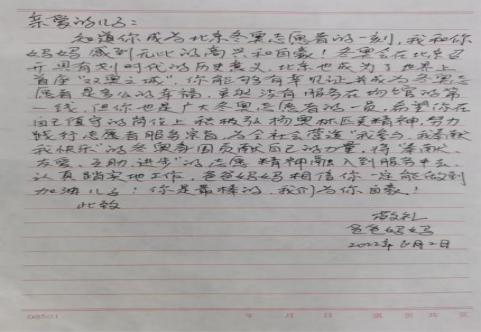 亲爱的儿子：
知道你成为北京冬奥志愿者的一刻，我和你
妈妈感到无比的高兴和自豪！冬奥会在北京召
开，具有划时代的历史意义，北京也成为了世界上
首座“双奥之城”，你能够有幸见证并成为冬奥志
愿者是多么的幸福，虽然没有服务在场馆的第
一线，但你也是广大冬奥志愿者的一员，希望你在
自己值守的岗位上积极弘扬奥林匹克精神，努力
践行志愿者服务宗旨，为全社会营造“我参与、我奉献
我快乐”的冬奥氛围贡献自己的力量，将“奉献、
友爱、互助、进步”的志愿精神融入到服务中去，
认真踏实地工作，爸爸妈妈相信你一定能做到
加油儿子！你是最棒的，我们为你自豪！
此致
敬礼
爸爸妈妈
2022年 月2日
年 月 日 第 页 共 页